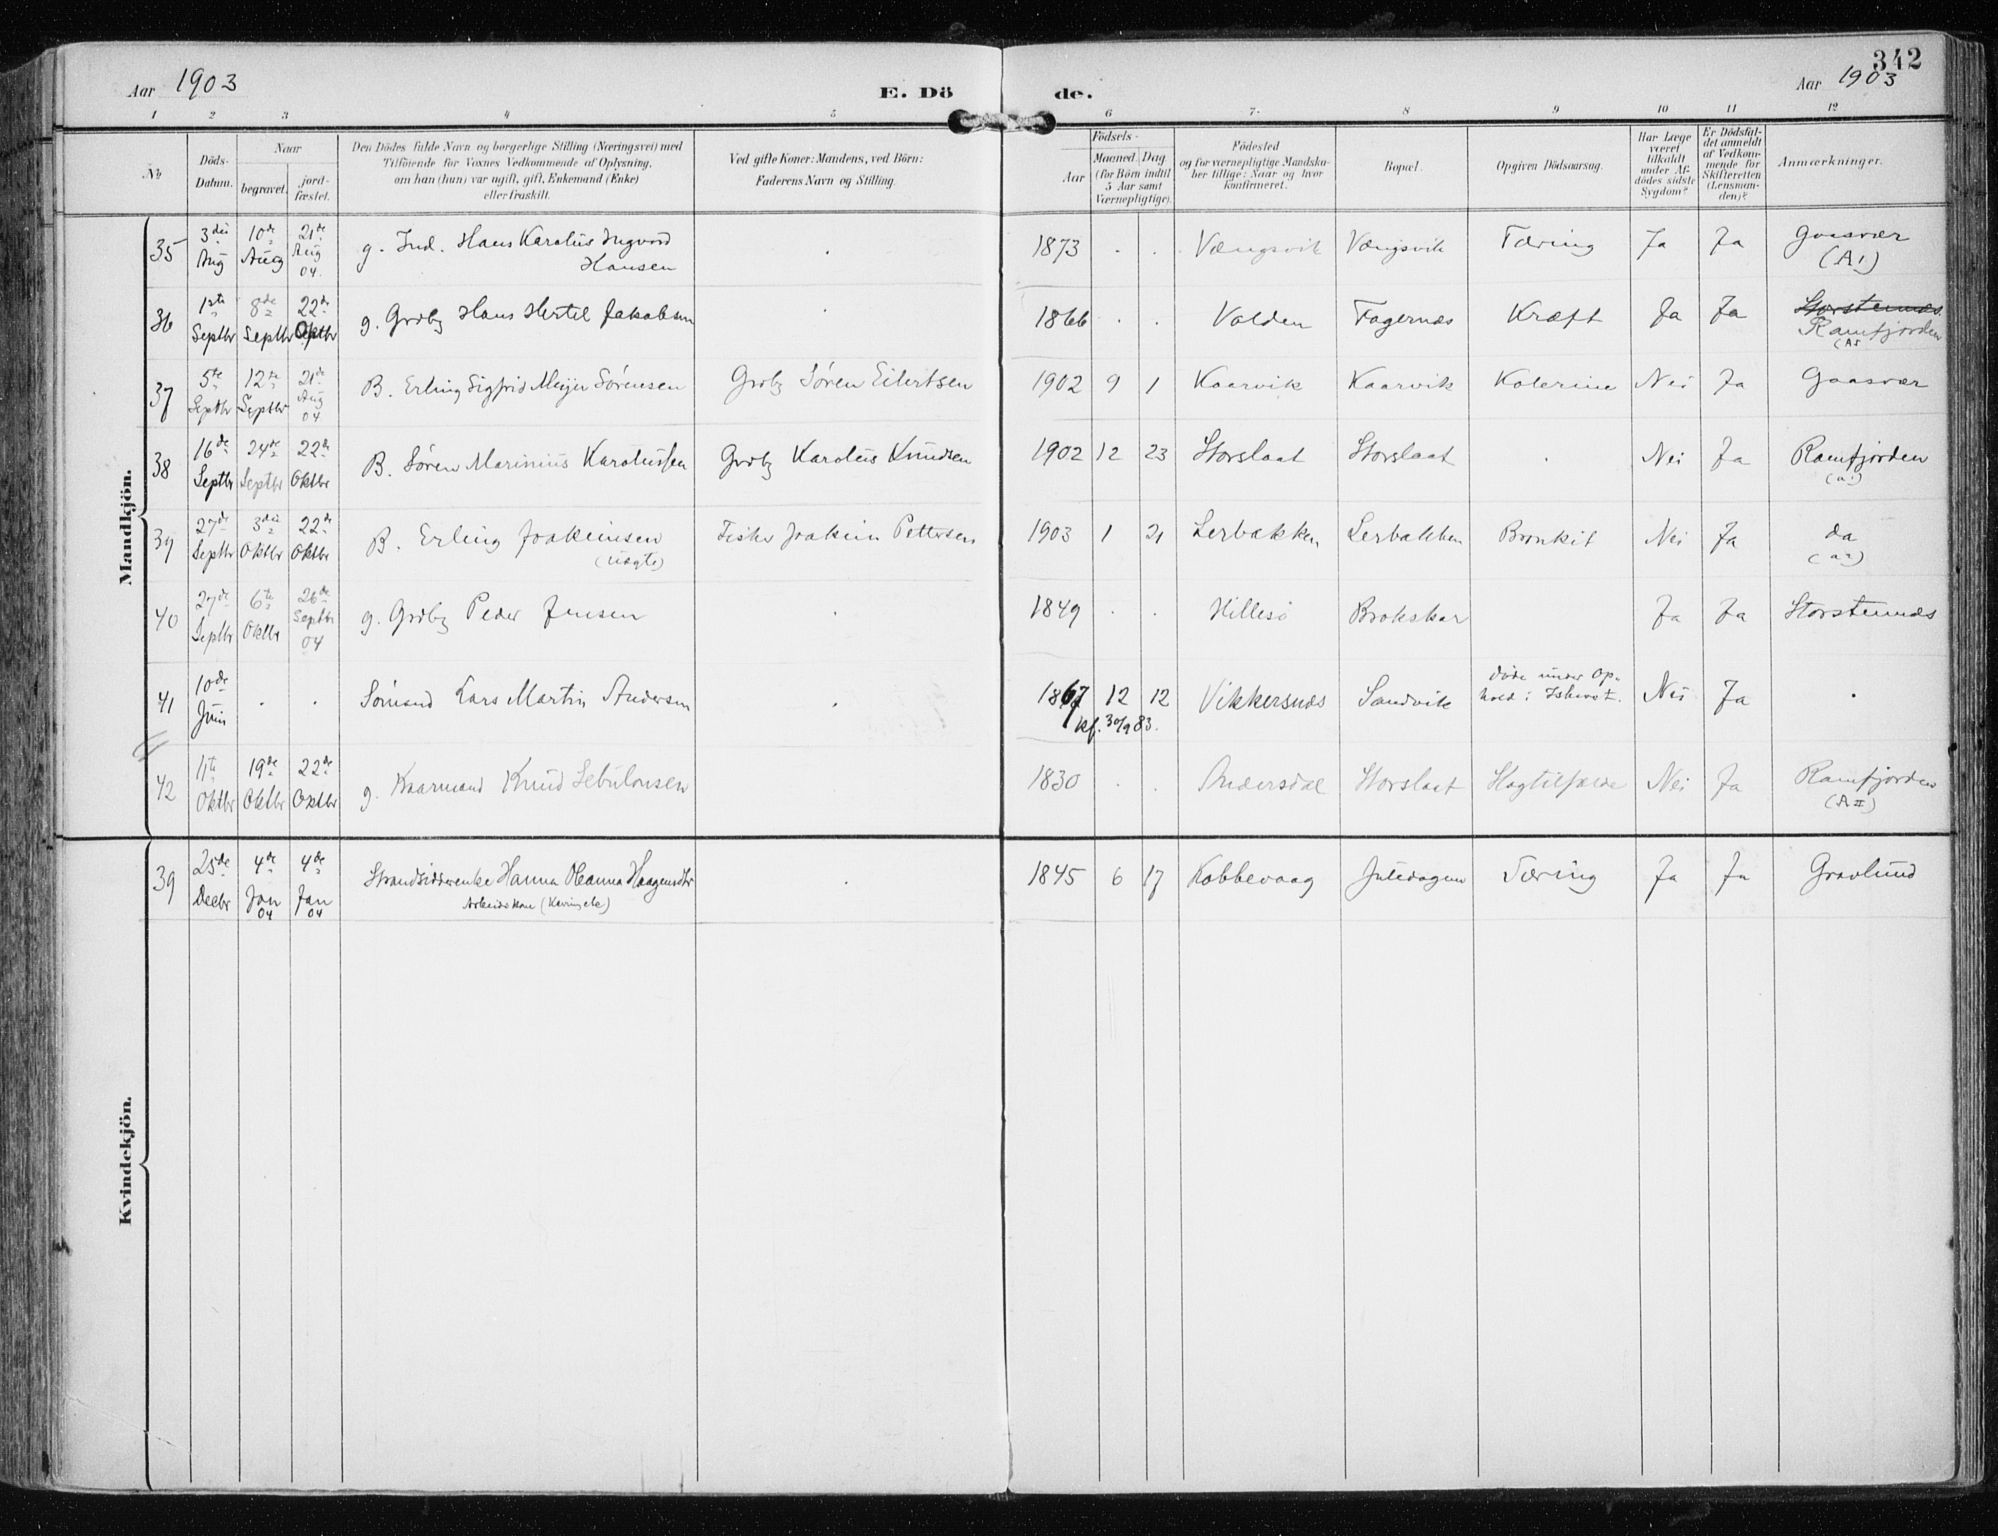 342
Aar 1903
E. Dö de.
Aar 1903
1 2 3 4 5 6 7. 8 9 10 11 12
№
Döds-
Datum.
Naar
begravet.
jord-
fæstet.
Den Dödes fulde Navn og borgerlige Stilling (Næringsvei) med
Tilföiende for Voxnes Vedkommende af Oplysning,
om han (hun) var ugift, gift, Enkemand (Enke)
eller fraskilt.
Ved gifte Koner: Mandens, ved Börn:
Faderens Navn og Stilling.
Födsels-
Aar
Maaned. Dag
(for Börn indtil
5 Aar samt
Værnepligtige).
Födested
og for værnepligtige Mandska-
ber tillige: Naar og hvor
konfirmeret.
Bopæl.
Opgiven Dödsaarsag.
Har Læge
været
tilkaldt
under Af-
dödes sidste
Sygdom?
Er Dödsfal-
det anmeldt
af Vedkom-
mende for
Skifteretten
(Lensman-
den)?
Anmærkninger.
Mandkjön.
35 3die Aug 10de Aug 21de Aug 04. g. Ind. Hans Karolus Ingvard Hansen . 1873 . . Vængsvik Vængsvik Tæring Ja Ja Gaasvær (A1)
36 1ste Septbr 8de Septbr 22de Oktbr g. Grdbg Hans Hertel Jakobsen . 1866 . . Volden Fagernæs Kræft Ja Ja Storstennæs Ramfjorden
37 5te Septbr 12te Septbr 21de Aug 04 B. Erling Sigfrid Meyer Sørensen Grdbg Søren Eilertsen 1902 9 1 Kaarvik Kaarvik Kolerine Nei Ja Gaasvær
38 16de Septbr 24de Septbr 22de Oktbr B. Søren Marinius Karolussen Grdbg Karolus Knudsen 1902 12 23 Storslaat Storslaat . Nei Ja Ramfjorden
39 27de Septbr 3die Oktbr 22de Oktbr B. Erling Joakimsen (uægte) Fisker Joakim Pettersen 1903 1 21 Lerbakken Lerbakken Bronkit Nei Ja da
40 27de Septbr 6te Oktbr 26de Septbr 04 g. Grdbg Peder Jensen . 1849 . . Hillesø Brokskar Ja Ja Storstennæs
41 10de Juni . . Sømand Lars Martin Andersen . 1867 12 12 Vikkersnæs Sandvik Døde under Op- hold i Ishavet. Nei Ja .
kf. 30/9 83.
42 11te Oktbr 19de Oktbr 22de Oktbr g. Kaarmand Knud Sebulonsen 1830 . . Andersdal Storslaat Slagtilfælde Nei Ja Ramfjorden (AII)
Kvindekjön.
39 25de Decbr 4de Jan 04 4de Jan 04 Strandsidderenke Hanna Oleanna Haagensdtr . 1845 6 17 Kobbevaag Tæring Ja Ja Gravlund